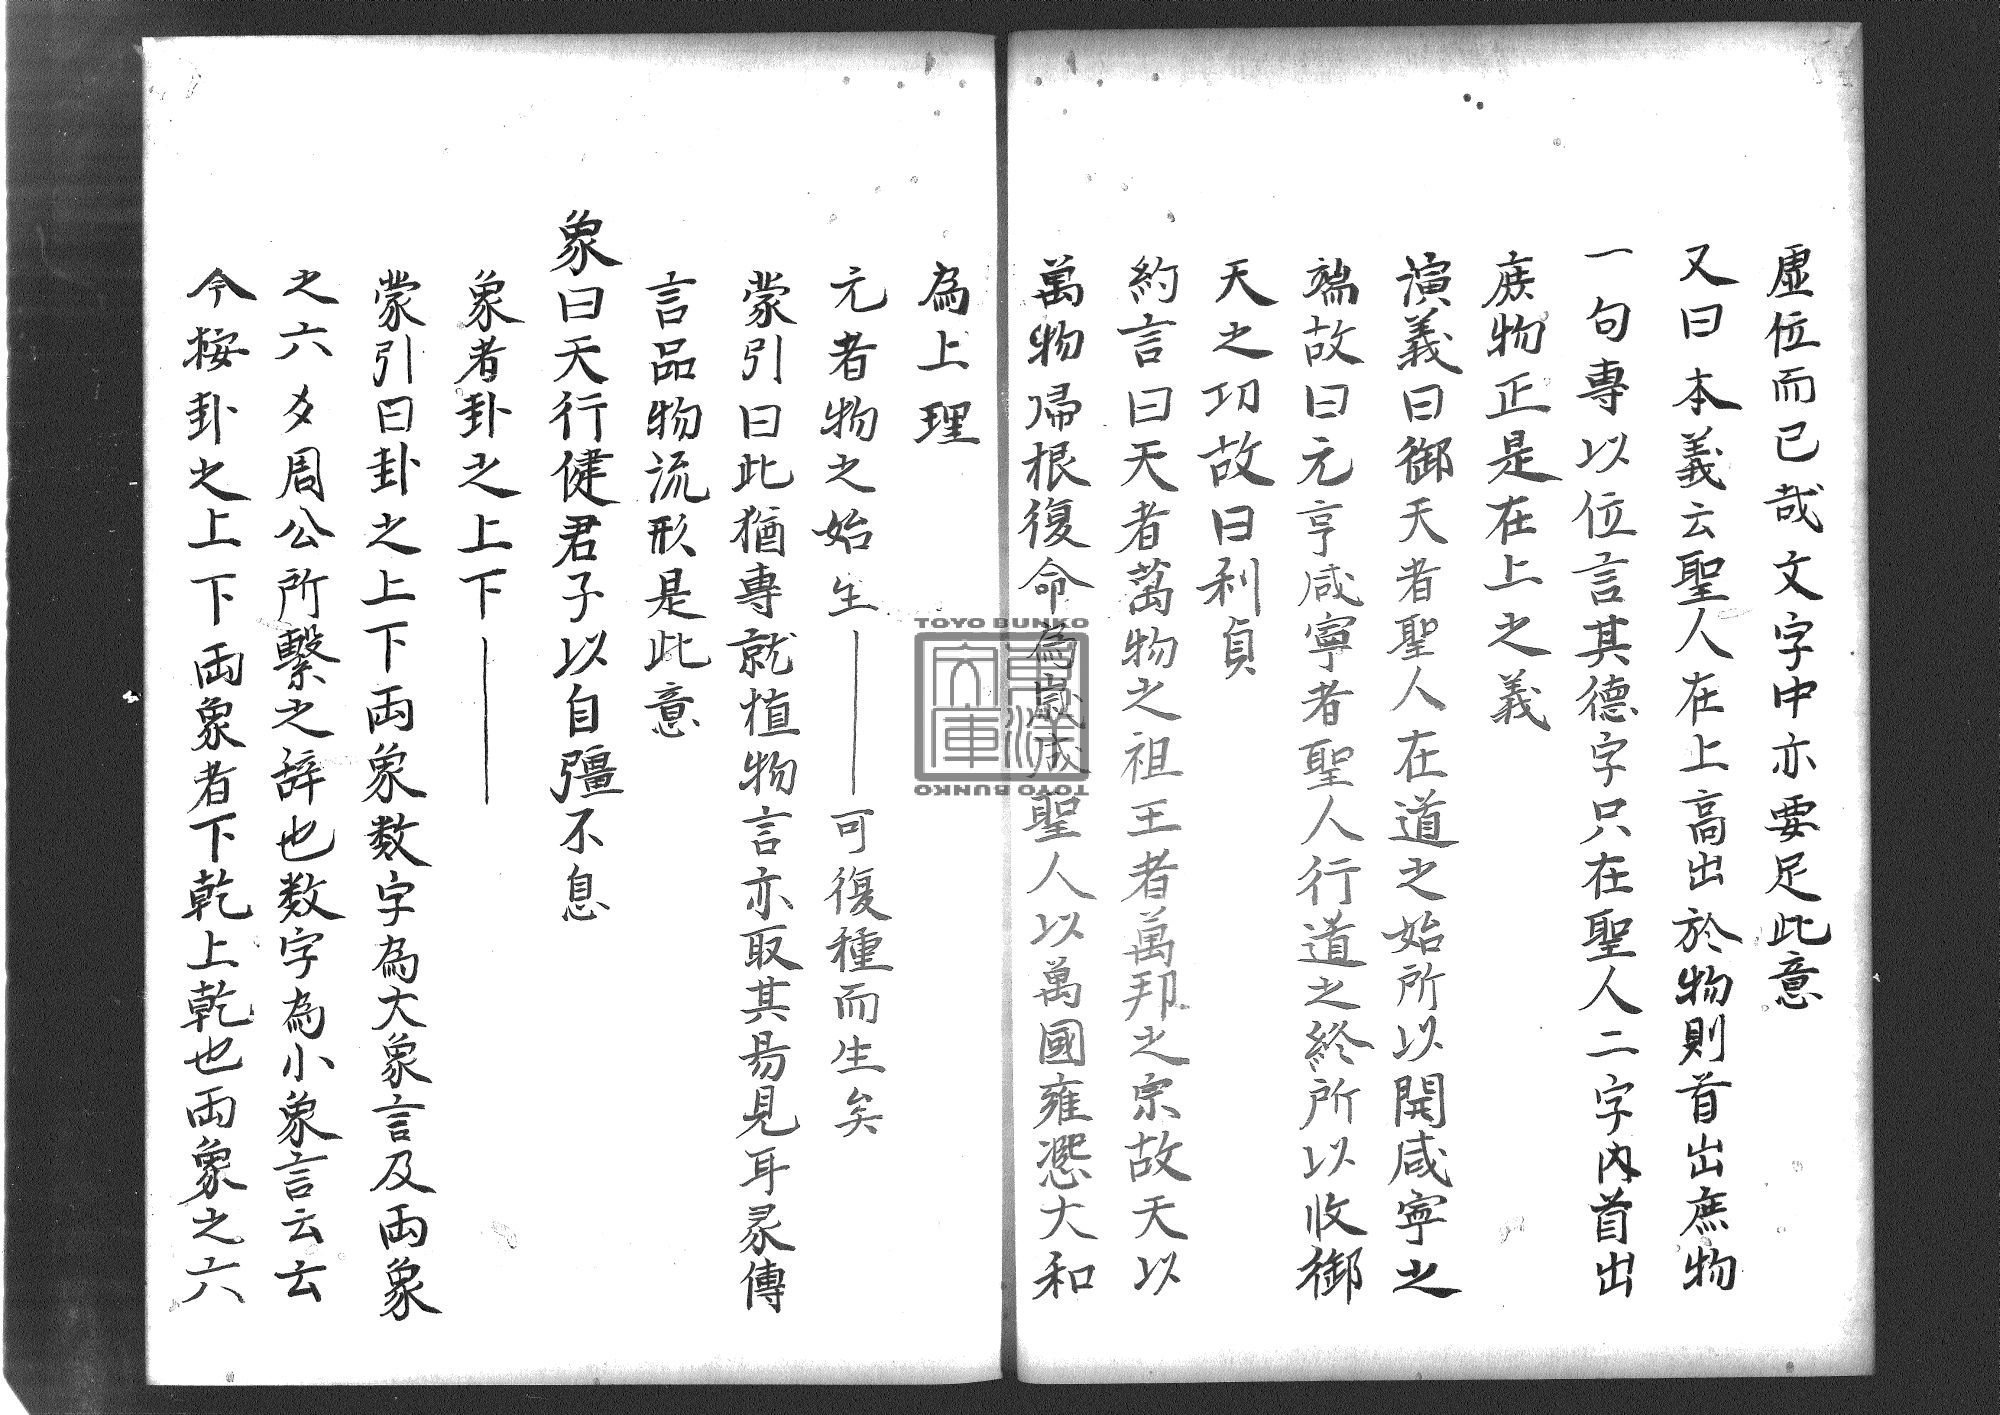 虛位而已哉文字中亦要足此意
又曰本義云聖人在上高出於物則首出庶物
一句專以位言其德字只在聖人二字內首出
庶物正是在上之義
演義曰御天者聖人在道之始所以開咸寧之
端故曰元亨咸寧者聖人行道之終所以收御
天之功故曰利貞
約言曰天者萬物之祖王者萬邦之宗故天以
萬物歸根復命為歲成聖人以萬國雍凞大和
為上理
元者物之始生——可復種而生矣
蒙引曰此猶專就植物言亦取其易見耳彖傳
言品物流形是此意
象曰天行健君子以自彊不息
象者卦之上下——
蒙引曰卦之上下兩象数字為大象言及兩象
之六爻周公所繫之辞也数字為小象言云云
今按卦之上下兩象者下乾上乾也兩象之六
TOYO BUNKO
東洋文庫
TOYO BUNKO